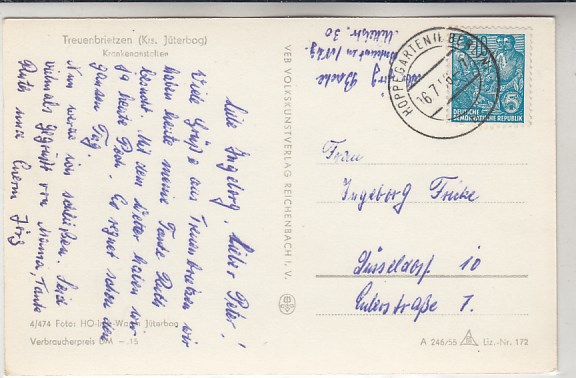 Treuenbrietzen (Krs. Jüterbog)
Krankenanstalten
Liebe Ingeborg, lieber Peter!
Viele Grüße aus Treuenbrietzen. Wir
haben heute meine Tante Ruth
besucht. Mit dem Wetter haben wir
ja heute Pech. Es regnet schon den
ganzen Tag.
Nun will ich schließen. Seid
vielmals gegrüßt von Mama, Tante
Ruth und Euerm Jörg
4/474 Foto: HO-
Jüterbog
Verbraucherpreis DM -.15
VEB VOLKSKUNSTVERLAG REICHENBACH I. V.
Jörg
30
HOPPEGARTEN
16.7.
DEUTSCHE
DEMOKRATISCHE REPUBLIK
Frau
Ingeborg Fricke
Düsseldorf 10
Eulerstraße 7.
A 246/55 Liz.-Nr. 172